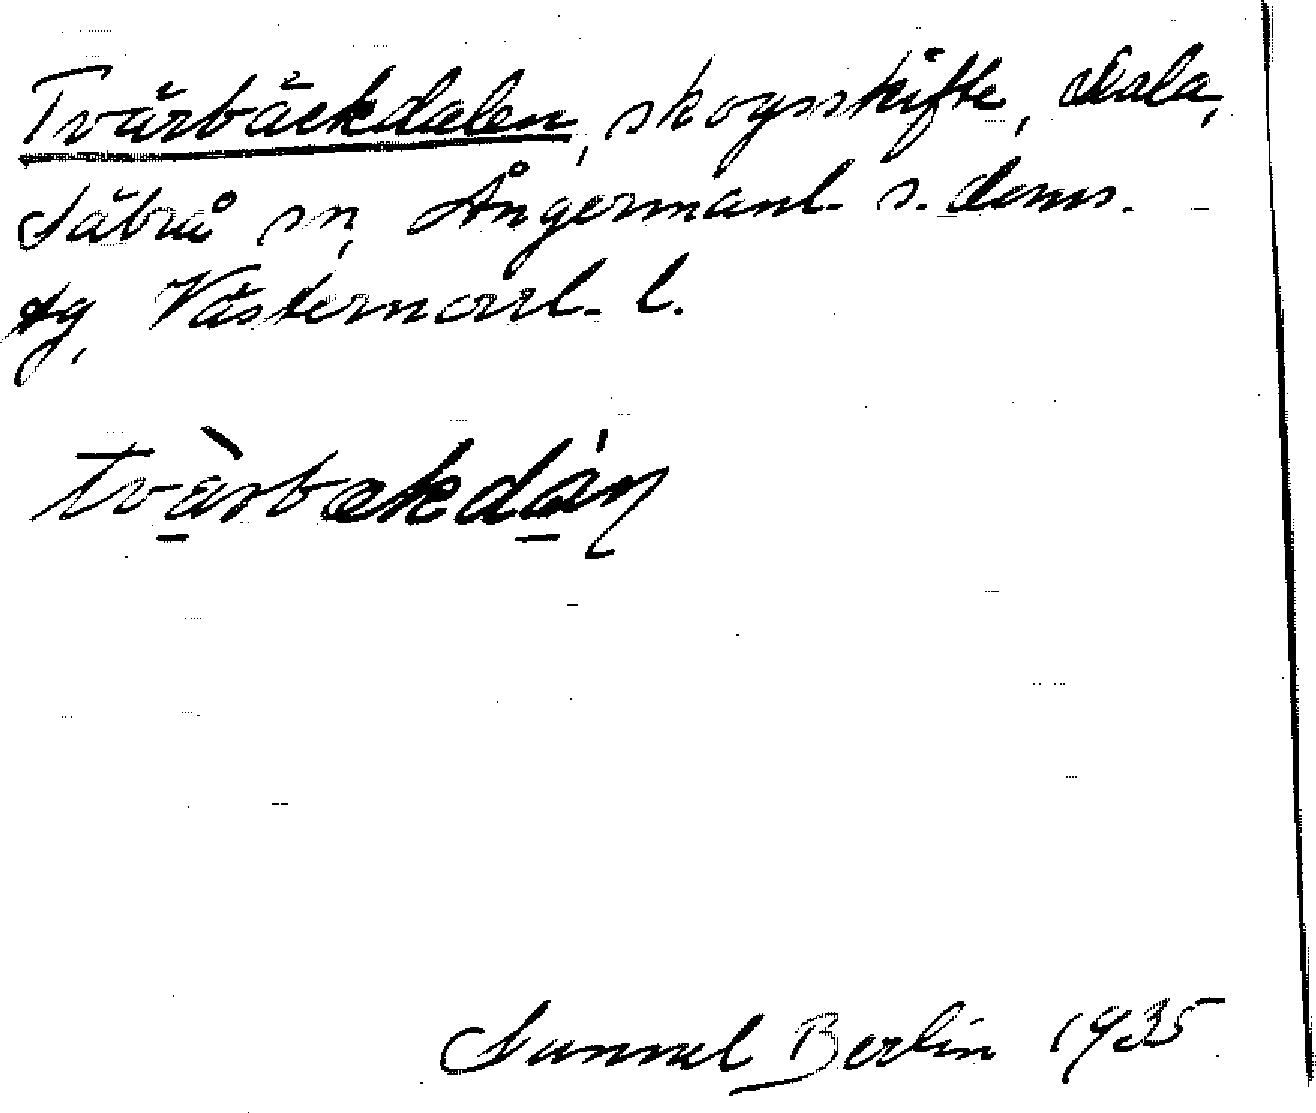 Tvärbäckdalen, skogsskifte, Dala,
Säbrå sn, Ångermanl. s. doms.
dg, Västernorrl. l.
tvärbækdán
Samuel Berlin 1935